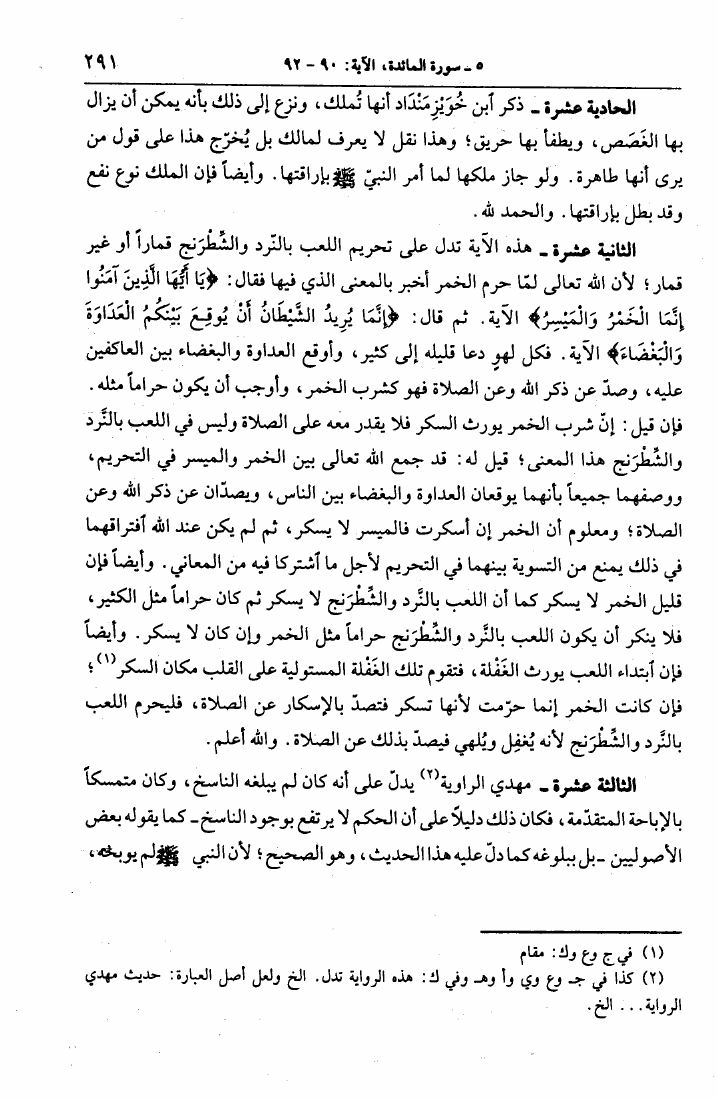 ٥ ـ سورة المائدة، الآية: ٩٠ - ٩٢ ٢٩١
الحادية عشرة ـ ذكر ٱبن خُوَيْزِمَنْدَاد أنها تُملك، ونزع إلى ذلك بأنه يمكن أن يزال
بها الغَصَص، ويطفأ بها حريق؛ وهذا نقل لا يعرف لمالك بل يُخرّج هذا على قول من
يرى أنها طاهرة. ولو جاز ملكها لما أمر النبيّ ﷺ بإراقتها. وأيضاً فإن الملك نوع نفع
وقد بطل بإراقتها. والحمد لله.
الثانية عشرة ـ هذه الآية تدل على تحريم اللعب بالنّرد والشِّطْرَنج قماراً أو غير
قمار؛ لأن الله تعالى لمّا حرم الخمر أخبر بالمعنى الذي فيها فقال: ﴿يَا أَيُّهَا الَّذِينَ آمَنُوا
إِنَّمَا الْخَمْرُ وَالْمَيْسِرُ﴾ الآية. ثم قال: ﴿إِنَّمَا يُرِيدُ الشَّيْطَانُ أَنْ يُوقِعَ بَيْنَكُمُ الْعَدَاوَةَ
وَالْبَغْضَاءَ﴾ الآية. فكل لهوٍ دعا قليله إلى كثير، وأوقع العداوة والبغضاء بين العاكفين
عليه، وصدّ عن ذكر الله وعن الصلاة فهو كشرب الخمر، وأوجب أن يكون حراماً مثله.
فإن قيل: إنّ شرب الخمر يورث السكر فلا يقدر معه على الصلاة وليس في اللعب بالنَّرد
والشِّطْرَنج هذا المعنى؛ قيل له: قد جمع الله تعالى بين الخمر والميسر في التحريم،
ووصفهما جميعاً بأنهما يوقعان العداوة والبغضاء بين الناس، ويصدّان عن ذكر الله وعن
الصلاة؛ ومعلوم أن الخمر إن أسكرت فالميسر لا يسكر، ثم لم يكن عند الله ٱفتراقهما
في ذلك يمنع من التسوية بينهما في التحريم لأجل ما ٱشتركا فيه من المعاني. وأيضاً فإن
قليل الخمر لا يسكر كما أن اللعب بالنَّرد والشِّطْرَنج لا يسكر ثم كان حراماً مثل الكثير،
فلا ينكر أن يكون اللعب بالنَّرد والشِّطْرَنج حراماً مثل الخمر وإن كان لا يسكر. وأيضاً
فإن ٱبتداء اللعب يورث الغَفْلة، فتقوم تلك الغَفْلة المستولية على القلب مكان السكر(١)؛
فإن كانت الخمر إنما حرّمت لأنها تسكر فتصدّ بالإسكار عن الصلاة، فليحرم اللعب
بالنَّرد والشِّطْرَنج لأنه يُغفِل ويُلهي فيصدّ بذلك عن الصلاة. والله أعلم.
الثالثة عشرة ـ مهدي الراوية(٢) يدلّ على أنه كان لم يبلغه الناسخ، وكان متمسكاً
بالإباحة المتقدّمة، فكان ذلك دليلاً على أن الحكم لا يرتفع بوجود الناسخ ـ كما يقوله بعض
الأصوليين ـ بل ببلوغه كما دلّ عليه هذا الحديث، وهو الصحيح؛ لأن النبي ﷺ لم يوبخه،
(١) في ج وع وك: مقام
(٢) كذا في جـ وع وي وأ وهـ وفي ك: هذه الرواية تدل. الخ ولعل أصل العبارة: حديث مهدي
الرواية... الخ.